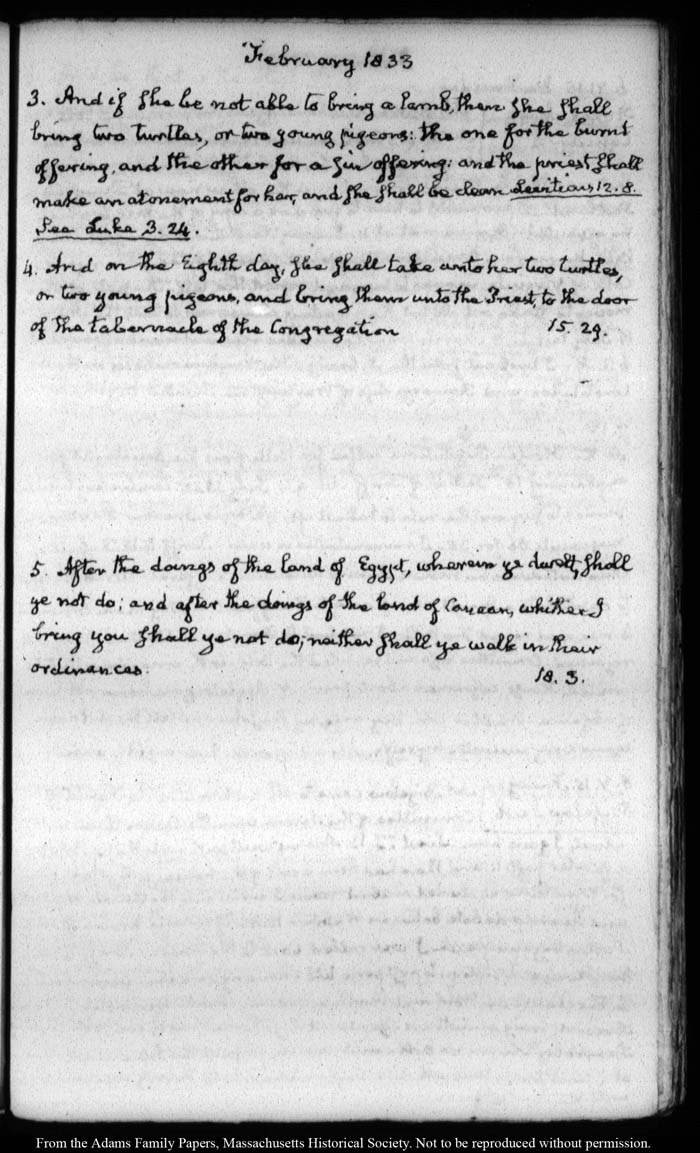 February 1833
3. And if she be not able to bring a lamb, then she shall
bring two turtles, or two young pigeons: the one for the burnt
offering, and the other for a sin offering: and the priest shall
make an atonement for her, and she shall be clean Leviticus 12. 8.
See Luke 3. 24.
4. And on the Eighth day, she shall take unto her two turtles,
or two young pigeons, and bring them unto the Priest, to the door
of the tabernacle of the Congregation 15. 29.
5. After the doings of the land of Egypt, wherein ye dwelt, shall
ye not do; and after the doings of the land of Canaan, whither I
bring you shall ye not do; neither shall ye walk in their
ordinances. 18. 3.
From the Adams Family Papers, Massachusetts Historical Society. Not to be reproduced without permission.